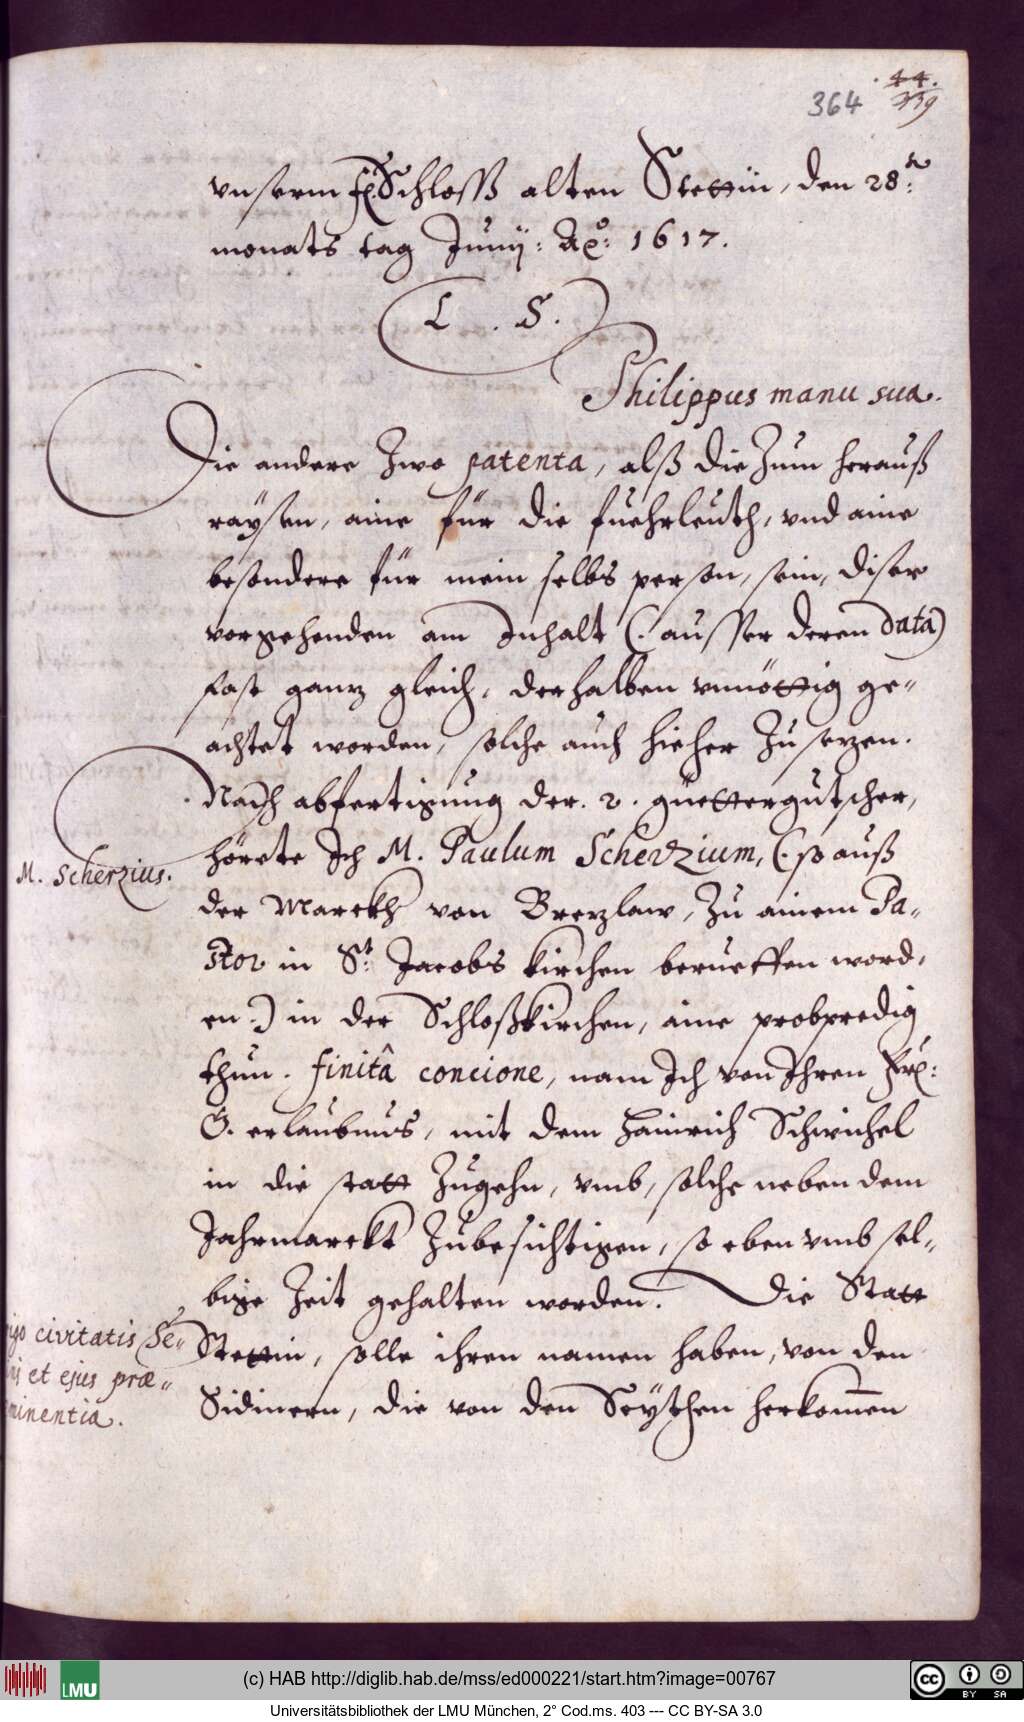 44.
364 339
vnserm f. Schloß alten Stettin, den 28:
monats tag Junij: Ao: 1617.
L. S.
Philippus manu sua.
Die andere Zwo patenta, alß die Zum herauß
raÿsen, aine für die fuehrleuth, vnd aine
besondere für mein selbs person, sein, diser
vorgehenden am Inhalt (: ausser deren data)
fast ganz gleich, derhalben vnnöttig ge„
achtet worden, solche auch hieher Zusezen.
Nach abfertigung der. 2. güettergutscher,
hörete Ich M. Paulum Scherzium, (: so auß
M. Scherzius.
der Marckh von Brezlaw, Zu ainem Pa„
stor in St: Jacobs kirchen berueffen word„
en:) in der Schloßkirchen, aine probpredig
thun. finitâ concione, nam Ich von Ihren Fr:
G. erlaubnus, mit dem Hainrich Schwichel
in die statt Zugehn, vmb, solche neben dem
Jahrmarckt Zubesichtigen, so eben vmb sel„
bige Zeit gehalten worden. Die Statt
Stettin, solle ihren namen haben, von den
Sidinern, die von den Scÿthen herkom̄en
civitatis Se„
et ejus præ„
minentia.
(c) HAB http://diglib.hab.de/mss/ed000221/start.htm?image=00767
LMU
cc BY SA
Universitätsbibliothek der LMU München, 2° Cod.ms. 403 --- CC BY-SA 3.0